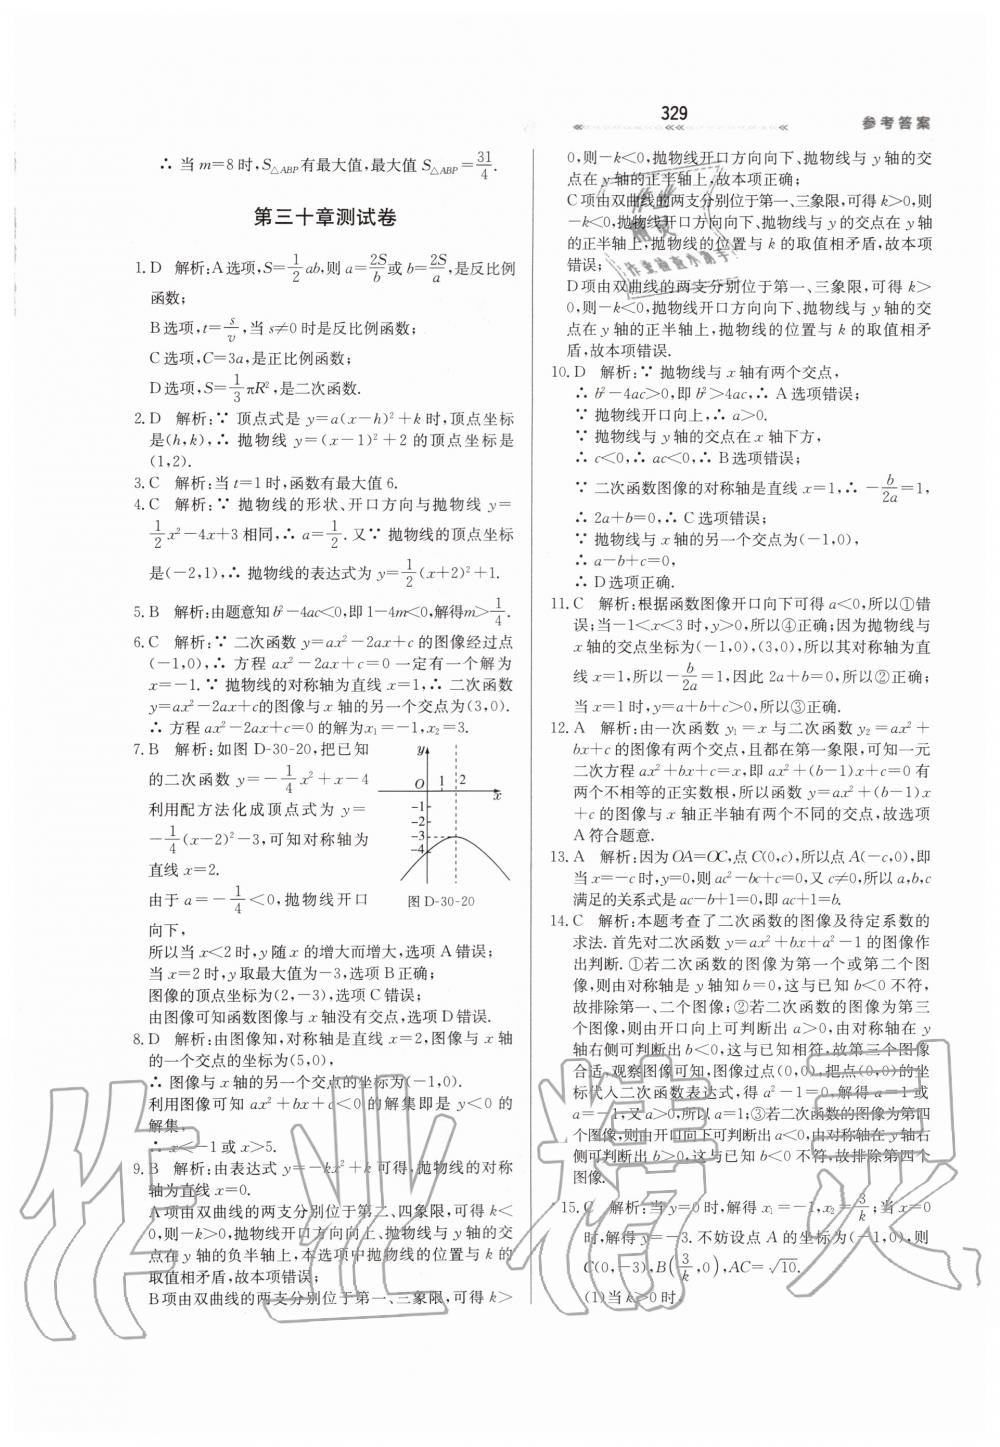 329
参考答案
∴ 当 m=8 时,S△ABP 有最大值,最大值 S△ABP=31/4.
第三十章测试卷
1. D　解析:A 选项,S=1/2 ab,则 a=2S/b 或 b=2S/a,是反比例
函数;
B 选项,t=s/v,当 s≠0 时是反比例函数;
C 选项,C=3a,是正比例函数;
D 选项,S=1/3 πR²,是二次函数.
2. D　解析:∵ 顶点式是 y=a(x-h)²+k 时,顶点坐标
是(h,k),∴ 抛物线 y=(x-1)²+2 的顶点坐标是
(1,2).
3. C　解析:当 t=1 时,函数有最大值 6.
4. C　解析:∵ 抛物线的形状、开口方向与抛物线 y=
1/2 x²-4x+3 相同,∴ a=1/2. 又∵ 抛物线的顶点坐标
是(-2,1),∴ 抛物线的表达式为 y=1/2(x+2)²+1.
5. B　解析:由题意知 b²-4ac<0,即 1-4m<0,解得m>1/4.
6. C　解析:∵ 二次函数 y=ax²-2ax+c 的图像经过点
(-1,0),∴ 方程 ax²-2ax+c=0 一定有一个解为
x=-1. ∵ 抛物线的对称轴为直线 x=1,∴ 二次函数
y=ax²-2ax+c的图像与 x 轴的另一个交点为(3,0).
∴ 方程 ax²-2ax+c=0 的解为x₁=-1,x₂=3.
7. B　解析:如图 D-30-20,把已知
的二次函数 y=-1/4 x²+x-4
利用配方法化成顶点式为 y=
-1/4(x-2)²-3,可知对称轴为
直线 x=2.
由于 a=-1/4<0,抛物线开口
向下,
y
O 1 2 x
-1
-2
-3
-4
图 D-30-20
所以当 x<2 时,y 随 x 的增大而增大,选项 A 错误;
当 x=2 时,y 取最大值为-3,选项 B 正确;
图像的顶点坐标为(2,-3),选项 C 错误;
由图像可知函数图像与 x 轴没有交点,选项 D 错误.
8. D　解析:由图像知,对称轴是直线 x=2,图像与 x 轴
的一个交点的坐标为(5,0),
∴ 图像与 x 轴的另一个交点的坐标为(-1,0).
利用图像可知 ax²+bx+c<0 的解集即是 y<0 的
解集,
∴ x<-1 或 x>5.
9. B　解析:由表达式 y=-kx²+k 可得,抛物线的对称
轴为直线 x=0.
A 项由双曲线的两支分别位于第二、四象限,可得 k<
0,则-k>0,抛物线开口方向向上、抛物线与 y 轴的交
点在 y 轴的负半轴上,本选项中抛物线的位置与 k 的
取值相矛盾,故本项错误;
B 项由双曲线的两支分别位于第一、三象限,可得 k>
0,则-k<0,抛物线开口方向向下、抛物线与 y 轴的交
点在 y 轴的正半轴上,故本项正确;
C 项由双曲线的两支分别位于第一、三象限,可得 k>0,则
-k<0,抛物线开口方向向下、抛物线与 y 的交点在 y 轴
的正半轴上,抛物线的位置与 k 的取值相矛盾,故本项
错误;
D 项由双曲线的两支分别位于第一、三象限,可得 k>
0,则-k<0,抛物线开口方向向下、抛物线与 y 轴的交
点在 y 轴的正半轴上,抛物线的位置与 k 的取值相矛
盾,故本项错误.
10. D　解析:∵ 抛物线与 x 轴有两个交点,
∴ b²-4ac>0,即 b²>4ac,∴ A 选项错误;
∵ 抛物线开口向上,∴ a>0.
∵ 抛物线与 y 轴的交点在 x 轴下方,
∴ c<0,∴ ac<0,∴ B 选项错误;
∵ 二次函数图像的对称轴是直线 x=1,∴ -b/2a=1,
∴ 2a+b=0,∴ C 选项错误;
∵ 抛物线与 x 轴的另一个交点为(-1,0),
∴ a-b+c=0,
∴ D 选项正确.
11. C　解析:根据函数图像开口向下可得 a<0,所以①错
误;当-1<x<3 时,y>0,所以④正确;因为抛物线与
x 轴的交点坐标为(-1,0),(3,0),所以其对称轴为直
线 x=1,所以-b/2a=1,因此 2a+b=0,所以②正确;
当 x=1 时,y=a+b+c>0,所以③正确.
12. A　解析:由一次函数 y₁=x 与二次函数 y₂=ax²+
bx+c 的图像有两个交点,且都在第一象限,可知一元
二次方程 ax²+bx+c=x,即 ax²+(b-1)x+c=0 有
两个不相等的正实数根,所以函数 y=ax²+(b-1)x
+c 的图像与 x 轴正半轴有两个不同的交点,故选项
A 符合题意.
13. A　解析:因为 OA=OC,点 C(0,c),所以点 A(-c,0),即
当 x=-c 时,y=0,则 ac²-bc+c=0,又 c≠0,所以 a,b,c
满足的关系式是 ac-b+1=0,即 ac+1=b.
14. C　解析:本题考查了二次函数的图像及待定系数的
求法. 首先对二次函数 y=ax²+bx+a²-1 的图像作
出判断. ①若二次函数的图像为第一个或第二个图
像,则由对称轴是 y 轴知 b=0,这与已知 b<0 不符,
故排除第一、二个图像;②若二次函数的图像为第三
个图像,则由开口向上可判断出 a>0,由对称轴在 y
轴右侧可判断出 b<0,这与已知相符,故第三个图像
合适,观察图像可知,图像过点(0,0),把点(0,0)的坐
标代入二次函数表达式,得 a²-1=0,解得 a=1 或
a=-1,又 a>0,所以 a=1;③若二次函数的图像为第四
个图像,则由开口向下可判断出 a<0,由对称轴在 y 轴右
侧可判断出 b>0,这与已知 b<0 不符,故排除第四个
图像.
15. C　解析:当 y=0 时,解得 x₁=-1,x₂=3/k;当 x=0
时,解得 y=-3. 不妨设点 A 的坐标为(-1,0),则
C(0,-3),B(3/k,0),AC=√10.
(1)当 k>0 时,
作业精灵
作业检查小助手